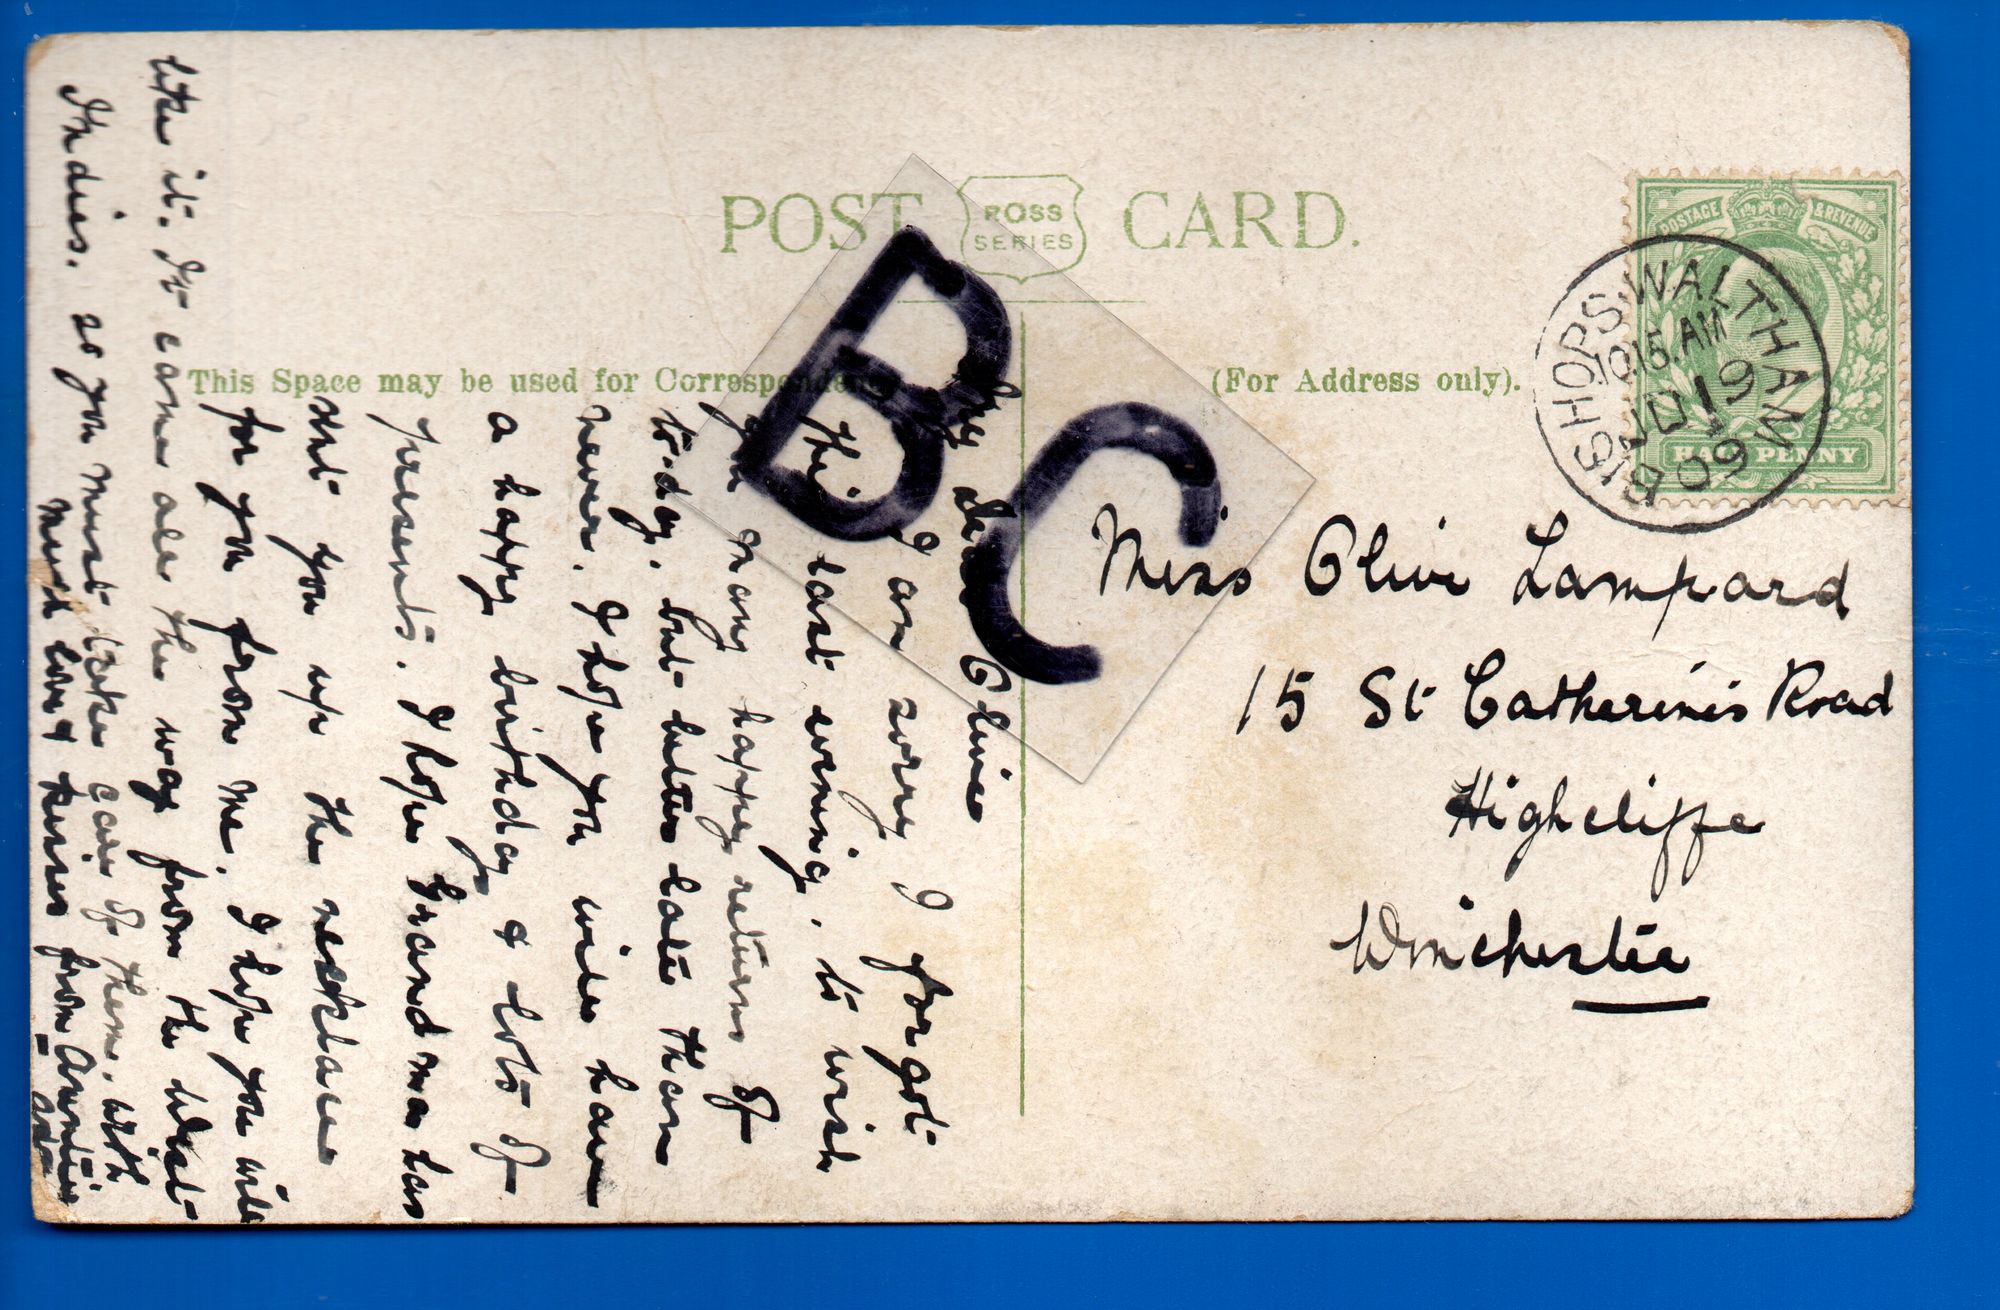 POST CARD.
ROSS
SERIES
This Space may be used for Correspondence
(For Address only).
POSTAGE & REVENUE
HALFPENNY
BISHOPS WALTHAM
10.15.AM
JU 19
09
BC
Miss Olive Lampard
15 St Catherine's Road
Highcliffe
Winchester
My dear Olive
I am sorry I forgot
this last evening, to wish
you many happy returns of
to-day, but better late than
never. I hope you will have
a happy birthday & lots of
presents. I hope Grandma has
sent you up the necklace
for you from me. I hope you will
like it. It came all the way from the West
Indies. so you must take care of them. with
much love & kisses from Auntie